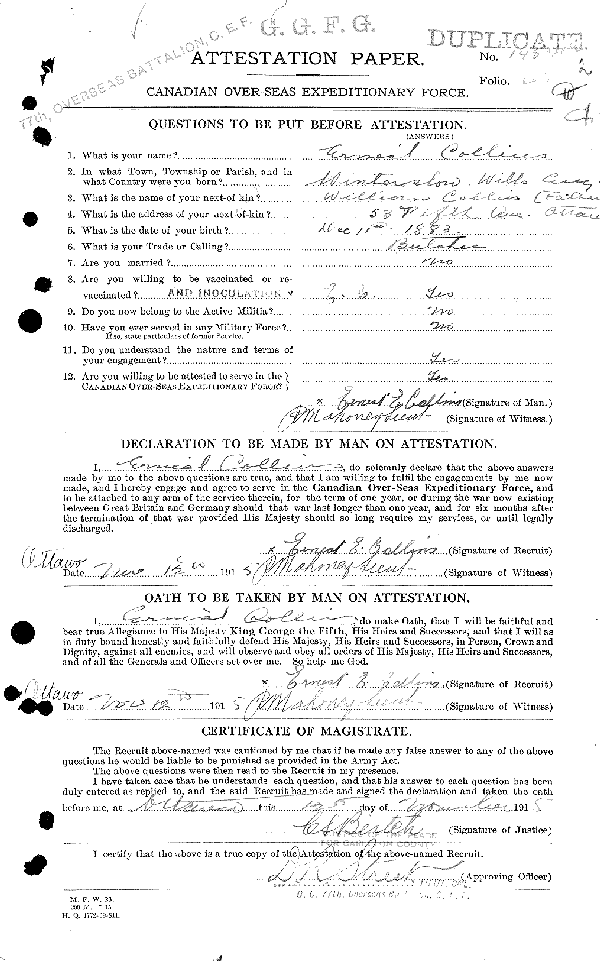 G. G. F. G.
DUPLICATE.
77th, OVERSEAS BATTALION, C. E. F.
ATTESTATION PAPER.
No.
Folio.
CANADIAN OVER-SEAS EXPEDITIONARY FORCE.
QUESTIONS TO BE PUT BEFORE ATTESTATION.
(ANSWERS)
1. What is your name? Ernest Collins
2. In what Town, Township or Parish, and in
what Country were you born? Winterslow Wilts Eng.
3. What is the name of your next-of kin? William Collins (Father
4. What is the address of your next-of-kin? 53 Fifth Ave. Ottawa
5. What is the date of your birth? Dec 11th 1883
6. What is your Trade or Calling? Butcher
7. Are you married? No
8. Are you willing to be vaccinated or re-
vaccinated? AND INOCULATION ? E. C. Yes
9. Do you now belong to the Active Militia? No
10. Have you ever served in any Military Force? No
If so, state particulars of former Service.
11. Do you understand the nature and terms of
your engagement? Yes
12. Are you willing to be attested to serve in the
CANADIAN OVER-SEAS EXPEDITIONARY FORCE? Yes
x Ernest E Collins (Signature of Man.)
Mahoney Lieut (Signature of Witness.)
DECLARATION TO BE MADE BY MAN ON ATTESTATION.
I, Ernest Collins, do solemnly declare that the above answers
made by me to the above questions are true, and that I am willing to fulfil the engagements by me now
made, and I hereby engage and agree to serve in the Canadian Over-Seas Expeditionary Force, and
to be attached to any arm of the service therein, for the term of one year, or during the war now existing
between Great Britain and Germany should that war last longer than one year, and for six months after
the termination of that war provided His Majesty should so long require my services, or until legally
discharged.
x Ernest E Collins (Signature of Recruit)
Ottawa
Date Nov 12th 1915 Mahoney Lieut (Signature of Witness)
OATH TO BE TAKEN BY MAN ON ATTESTATION.
I, Ernest Collins, do make Oath, that I will be faithful and
bear true Allegiance to His Majesty King George the Fifth, His Heirs and Successors, and that I will as
in duty bound honestly and faithfully defend His Majesty, His Heirs and Successors, in Person, Crown and
Dignity, against all enemies, and will observe and obey all orders of His Majesty, His Heirs and Successors,
and of all the Generals and Officers set over me. So help me God.
x Ernest E Collins (Signature of Recruit)
Ottawa
Date Nov 12th 1915 Mahoney Lieut (Signature of Witness)
CERTIFICATE OF MAGISTRATE.
The Recruit above-named was cautioned by me that if he made any false answer to any of the above
questions he would be liable to be punished as provided in the Army Act.
The above questions were then read to the Recruit in my presence.
I have taken care that he understands each question, and that his answer to each question has been
duly entered as replied to, and the said Recruit has made and signed the declaration and taken the oath
before me, at Ottawa this 12th day of November 1915
(Signature of Justice)
FOR CARLETON COUNTY
I certify that the above is a true copy of the Attestation of the above-named Recruit.
Street (Approving Officer)
O. C. 77th, Overseas
M. F. W. 23.
H. Q. 1772-39-841.